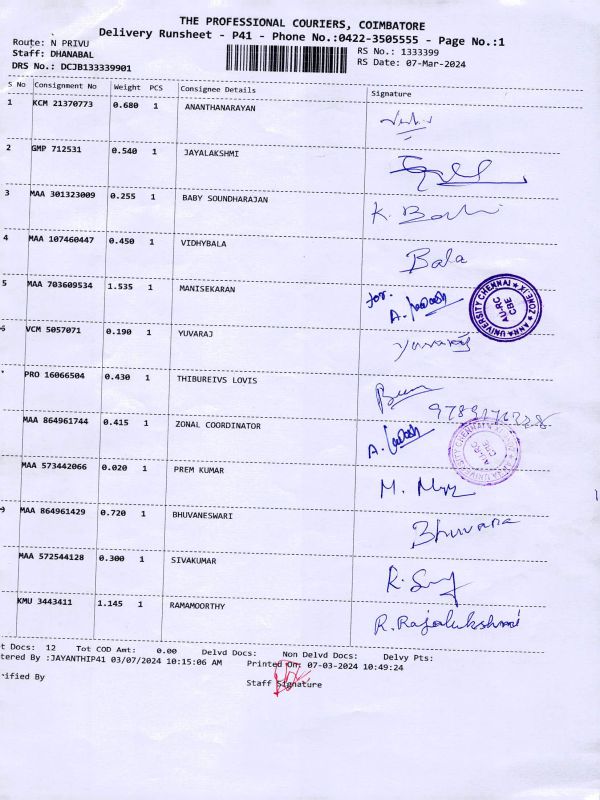 THE PROFESSIONAL COURIERS, COIMBATORE
Delivery Runsheet - P41 - Phone No.:0422-3505555 - Page No.:1
Route: N PRIVU
RS No.: 1333399
Staff: DHANABAL
RS Date: 07-Mar-2024
DRS No.: DCJB133339901
S No Consignment No Weight PCS Consignee Details Signature
1 KCM 21370773 0.680 1 ANANTHANARAYAN
2 GMP 712531 0.540 1 JAYALAKSHMI
3 MAA 301323009 0.255 1 BABY SOUNDHARAJAN K.
4 MAA 107460447 0.450 1 VIDHYBALA Bala
5 MAA 703609534 1.535 1 MANISEKARAN for. A.
ANNA UNIVERSITY CHENNAI ZONE IX
AU-RC
CBE
6 VCM 5057071 0.190 1 YUVARAJ Yuvaraj
PRO 16066504 0.430 1 THIBUREIVS LOVIS
MAA 864961744 0.415 1 ZONAL COORDINATOR A.
AU-RC
CBE
MAA 573442066 0.020 1 PREM KUMAR M.
9 MAA 864961429 0.720 1 BHUVANESWARI Bhuvana
MAA 572544128 0.300 1 SIVAKUMAR R.
KMU 3443411 1.145 1 RAMAMOORTHY R. Rajalukshmi
t Docs: 12 Tot COD Amt: 0.00 Delvd Docs: Non Delvd Docs: Delvy Pts:
tered By :JAYANTHIP41 03/07/2024 10:15:06 AM Printed On: 07-03-2024 10:49:24
rified By
Staff Signature